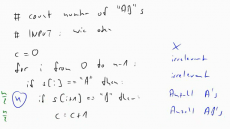 # count number of "AA"s
# INPUT: wie oben
c = 0
for i from 0 to n-1:
if s[i] == "A" then:
if s[i+1] == "A" then:
c = c+1
x
irrelevant
irrelevant
Anzahl A's
Anzahl AA's